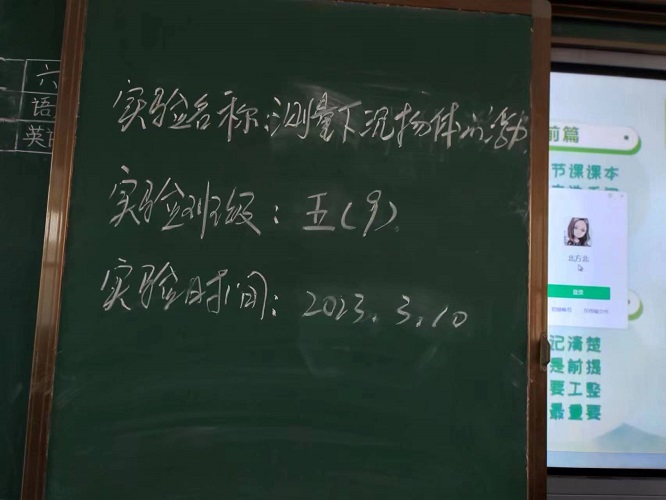 六
语
英
实验名称:测量下沉物体的浮力
实验班级:五(9)
实验时间:2023.3.10
前篇
节课课本
北方北
登录
记清楚
是前提
要工整
最重要